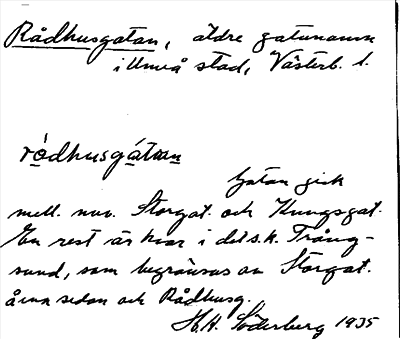 Rådhusgatan, äldre gatunamn
i Umeå stad, Västerb. l.
rȯ́dhusgátan
Gatan gick
mell. nuv. Storgat. och Kungsgat.
En rest är kvar i det s.k. Trång-
sund, som begränsas av Storgat.
å ena sidan och Rådhusg.
H.H. Söderberg 1935